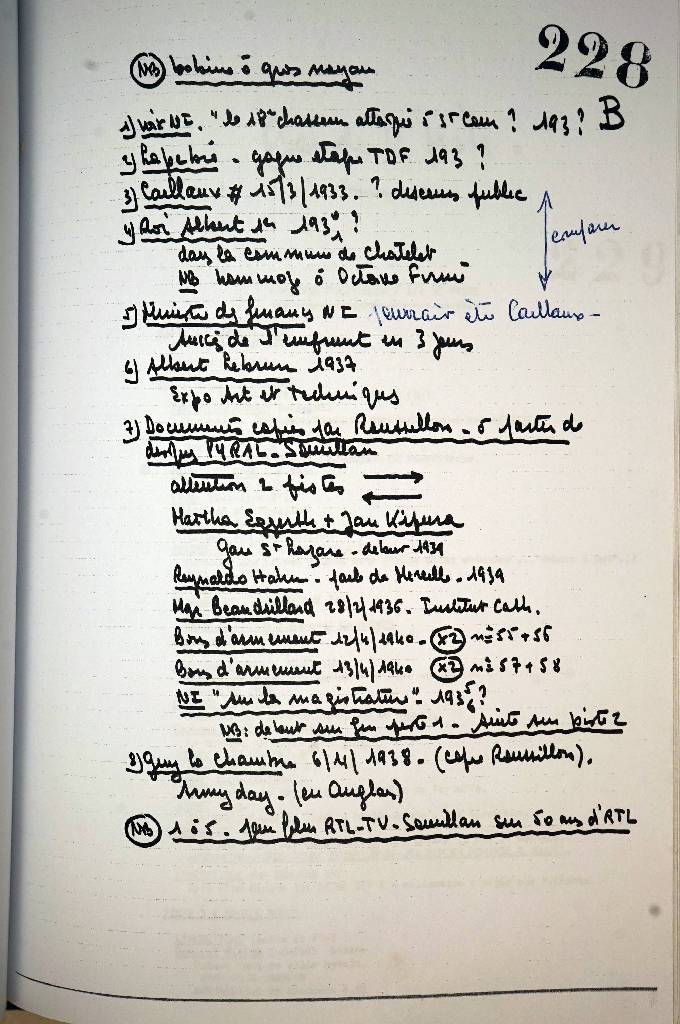 228
NB bobine à gros noyau
B
1) Voir NI. "le 18e chasseur attaque à 5h ? 193?
2) Lapébie - gagne étape TDF 193 ?
3) Caillaux # 15/3/1933. ? discours public
4) Roi Albert 1er 193 ?
comparer
dans la commune de Chatelet
NB hommage à Octave
5) Ministre des finances NI pourrait être Caillaux -
Succès de l'emprunt en 3 jours
6) Albert Lebrun 1937
Expo Art et Techniques
7) Documents copiés par Roussillon - à partir de
disques PYRAL - Souillan
attention 2 pistes
Martha Eggerth + Jan Kipura
Gare St Lazare - début 1939
Reynaldo Hahn - parle de Mireille - 1939
Mgr Beaudrillard 28/2/1936. Institut Cath.
Bons d'armement 12/4/1940 - (x2) n° 55 + 56
Bons d'armement 13/4/1940 (x2) n° 57 + 58
NI "sur la magistrature" - 193 5/6 ?
NB: début sur fin piste 1 - suite sur piste 2
8) Guy la Chambre 6/4/1938 - (copie Roussillon).
Army day - (en Anglais)
NB 1 à 5 - pour film RTL-TV - Souillan sur 50 ans d'RTL